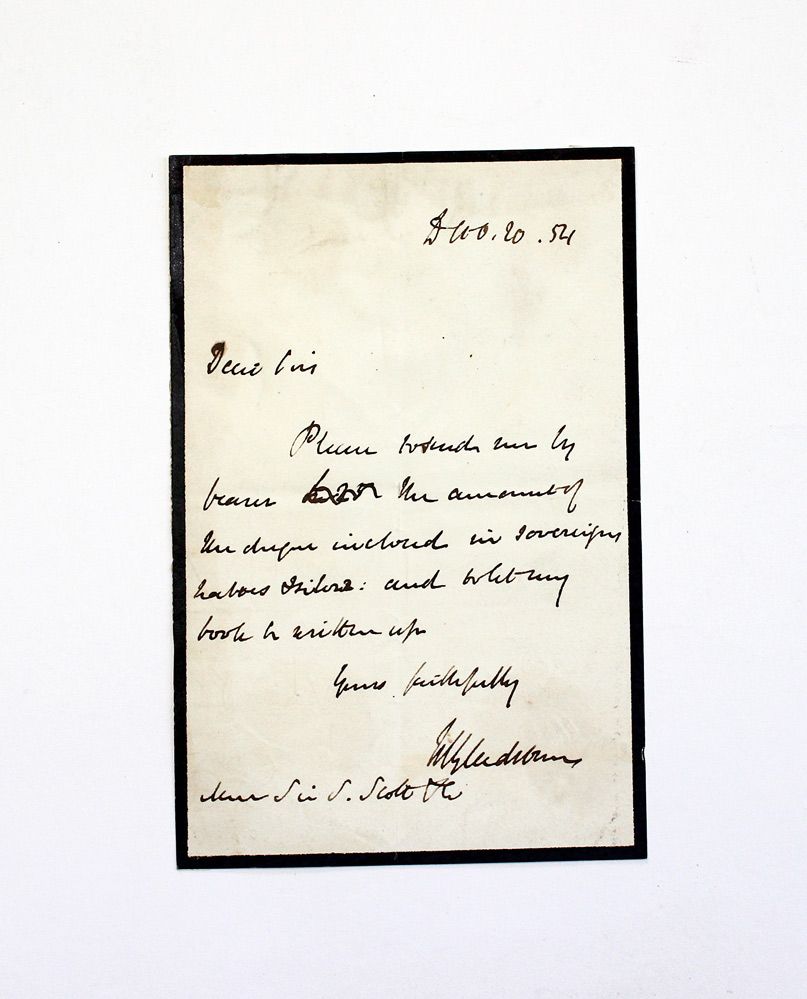 D 20 . 54
Dear Sirs
Please to send me by
bearer the amount of
the cheque inclosed in Sovereigns
& silver: and to let my
book be written up
Yours faithfully
WEGladstone
Messrs Sir S. Scott & Co